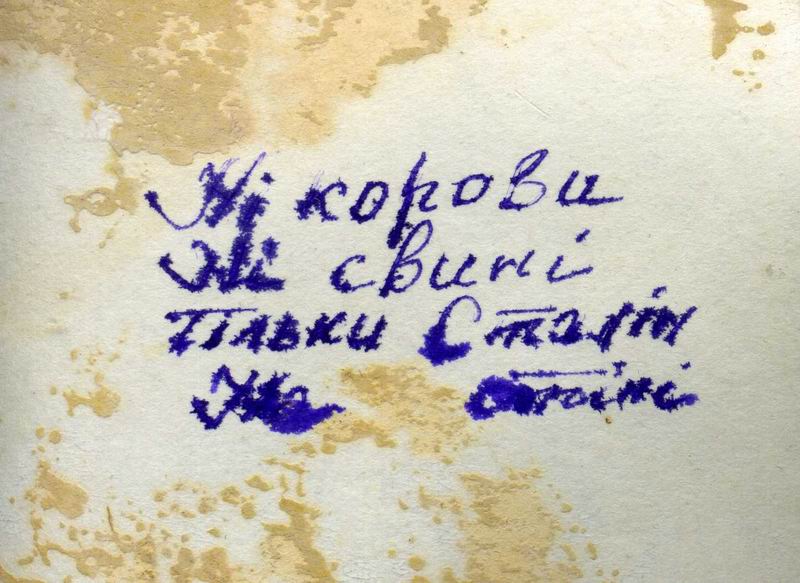 Ні корови
Ні свині
Тільки Сталін
На стіні